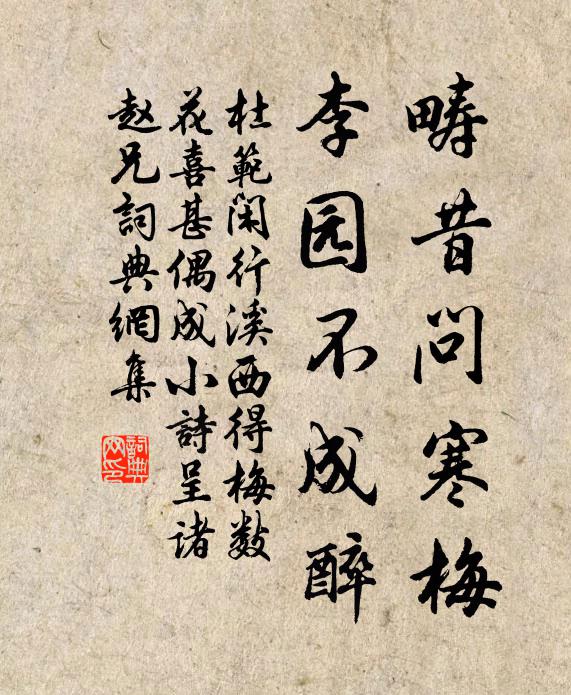 畴昔问寒梅
李园不成醉
杜範闲行溪西得梅数
花喜甚偶成小詩呈诸
赵兄詞典網集
詞典网印